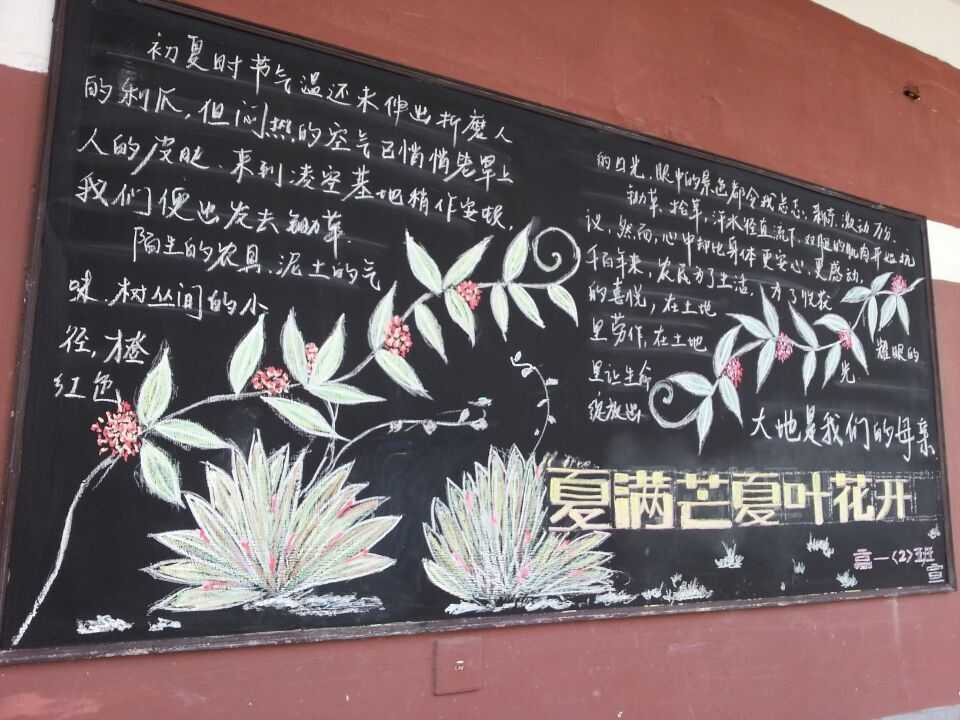 初夏时节气温还未伸出折磨人
的利爪，但闷热的空气已悄悄笼罩上
人的皮肤、来到凌空基地稍作安顿，
我们便出发去锄草．
陌生的农具、泥土的气
味、树丛间的小
径，橙
红色
的日光、眼中的景色都令我忐忑、新奇、激动万分．
锄草、拾草、汗水径直流下，双腿的肌肉开始抗
议，然而，心中却比身体更安心、更感动．
千百年来，农民为了生活，为了收获
的喜悦，在土地
里劳作，在土地
里让生命
绽放出
耀眼的
光．
大地是我们的母亲
夏满芒夏叶花开
高一（2）班
宣